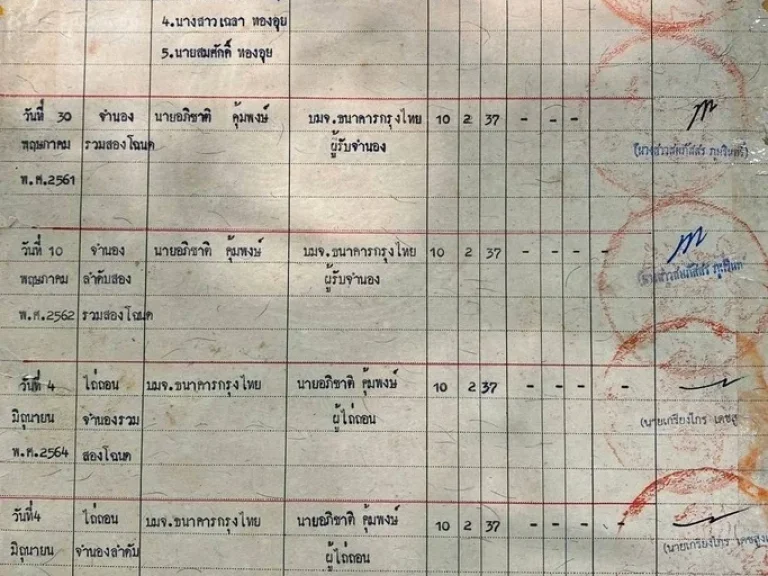 4.นางสาวเฉลา ทองอุย
5.นายสมศักดิ์ ทองอุย
วันที่ 30 จำนอง นายอภิชาติ คุ้มพงษ์ บมจ.ธนาคารกรุงไทย 10 2 37 - - -
พฤษภาคม รวมสองโฉนด ผู้รับจำนอง
พ.ศ.2561
วันที่ 10 จำนอง นายอภิชาติ คุ้มพงษ์ บมจ.ธนาคารกรุงไทย 10 2 37 - - - -
พฤษภาคม ลำดับสอง ผู้รับจำนอง
พ.ศ.2562 รวมสองโฉนด
วันที่ 4 ไถ่ถอน บมจ.ธนาคารกรุงไทย นายอภิชาติ คุ้มพงษ์ 10 2 37 - - - -
มิถุนายน จำนองรวม ผู้ไถ่ถอน (นายเกรียงไกร
พ.ศ.2564 สองโฉนด
วันที่4 ไถ่ถอน บมจ.ธนาคารกรุงไทย นายอภิชาติ คุ้มพงษ์ 10 2 37 - - - -
มิถุนายน จำนองลำดับ ผู้ไถ่ถอน (นายเกรียงไกร